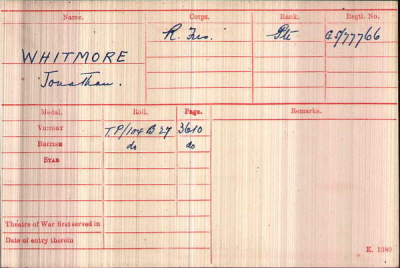 Name. Corps. Rank. Regtl. No.
WHITMORE R. Fus. Pte GS/77766
Jonathan.
Medal. Roll. Page. Remarks.
VICTORY TP/104 B 27 3610
BRITISH do do
STAR
Theatre of War first served in
Date of entry therein
K. 1380